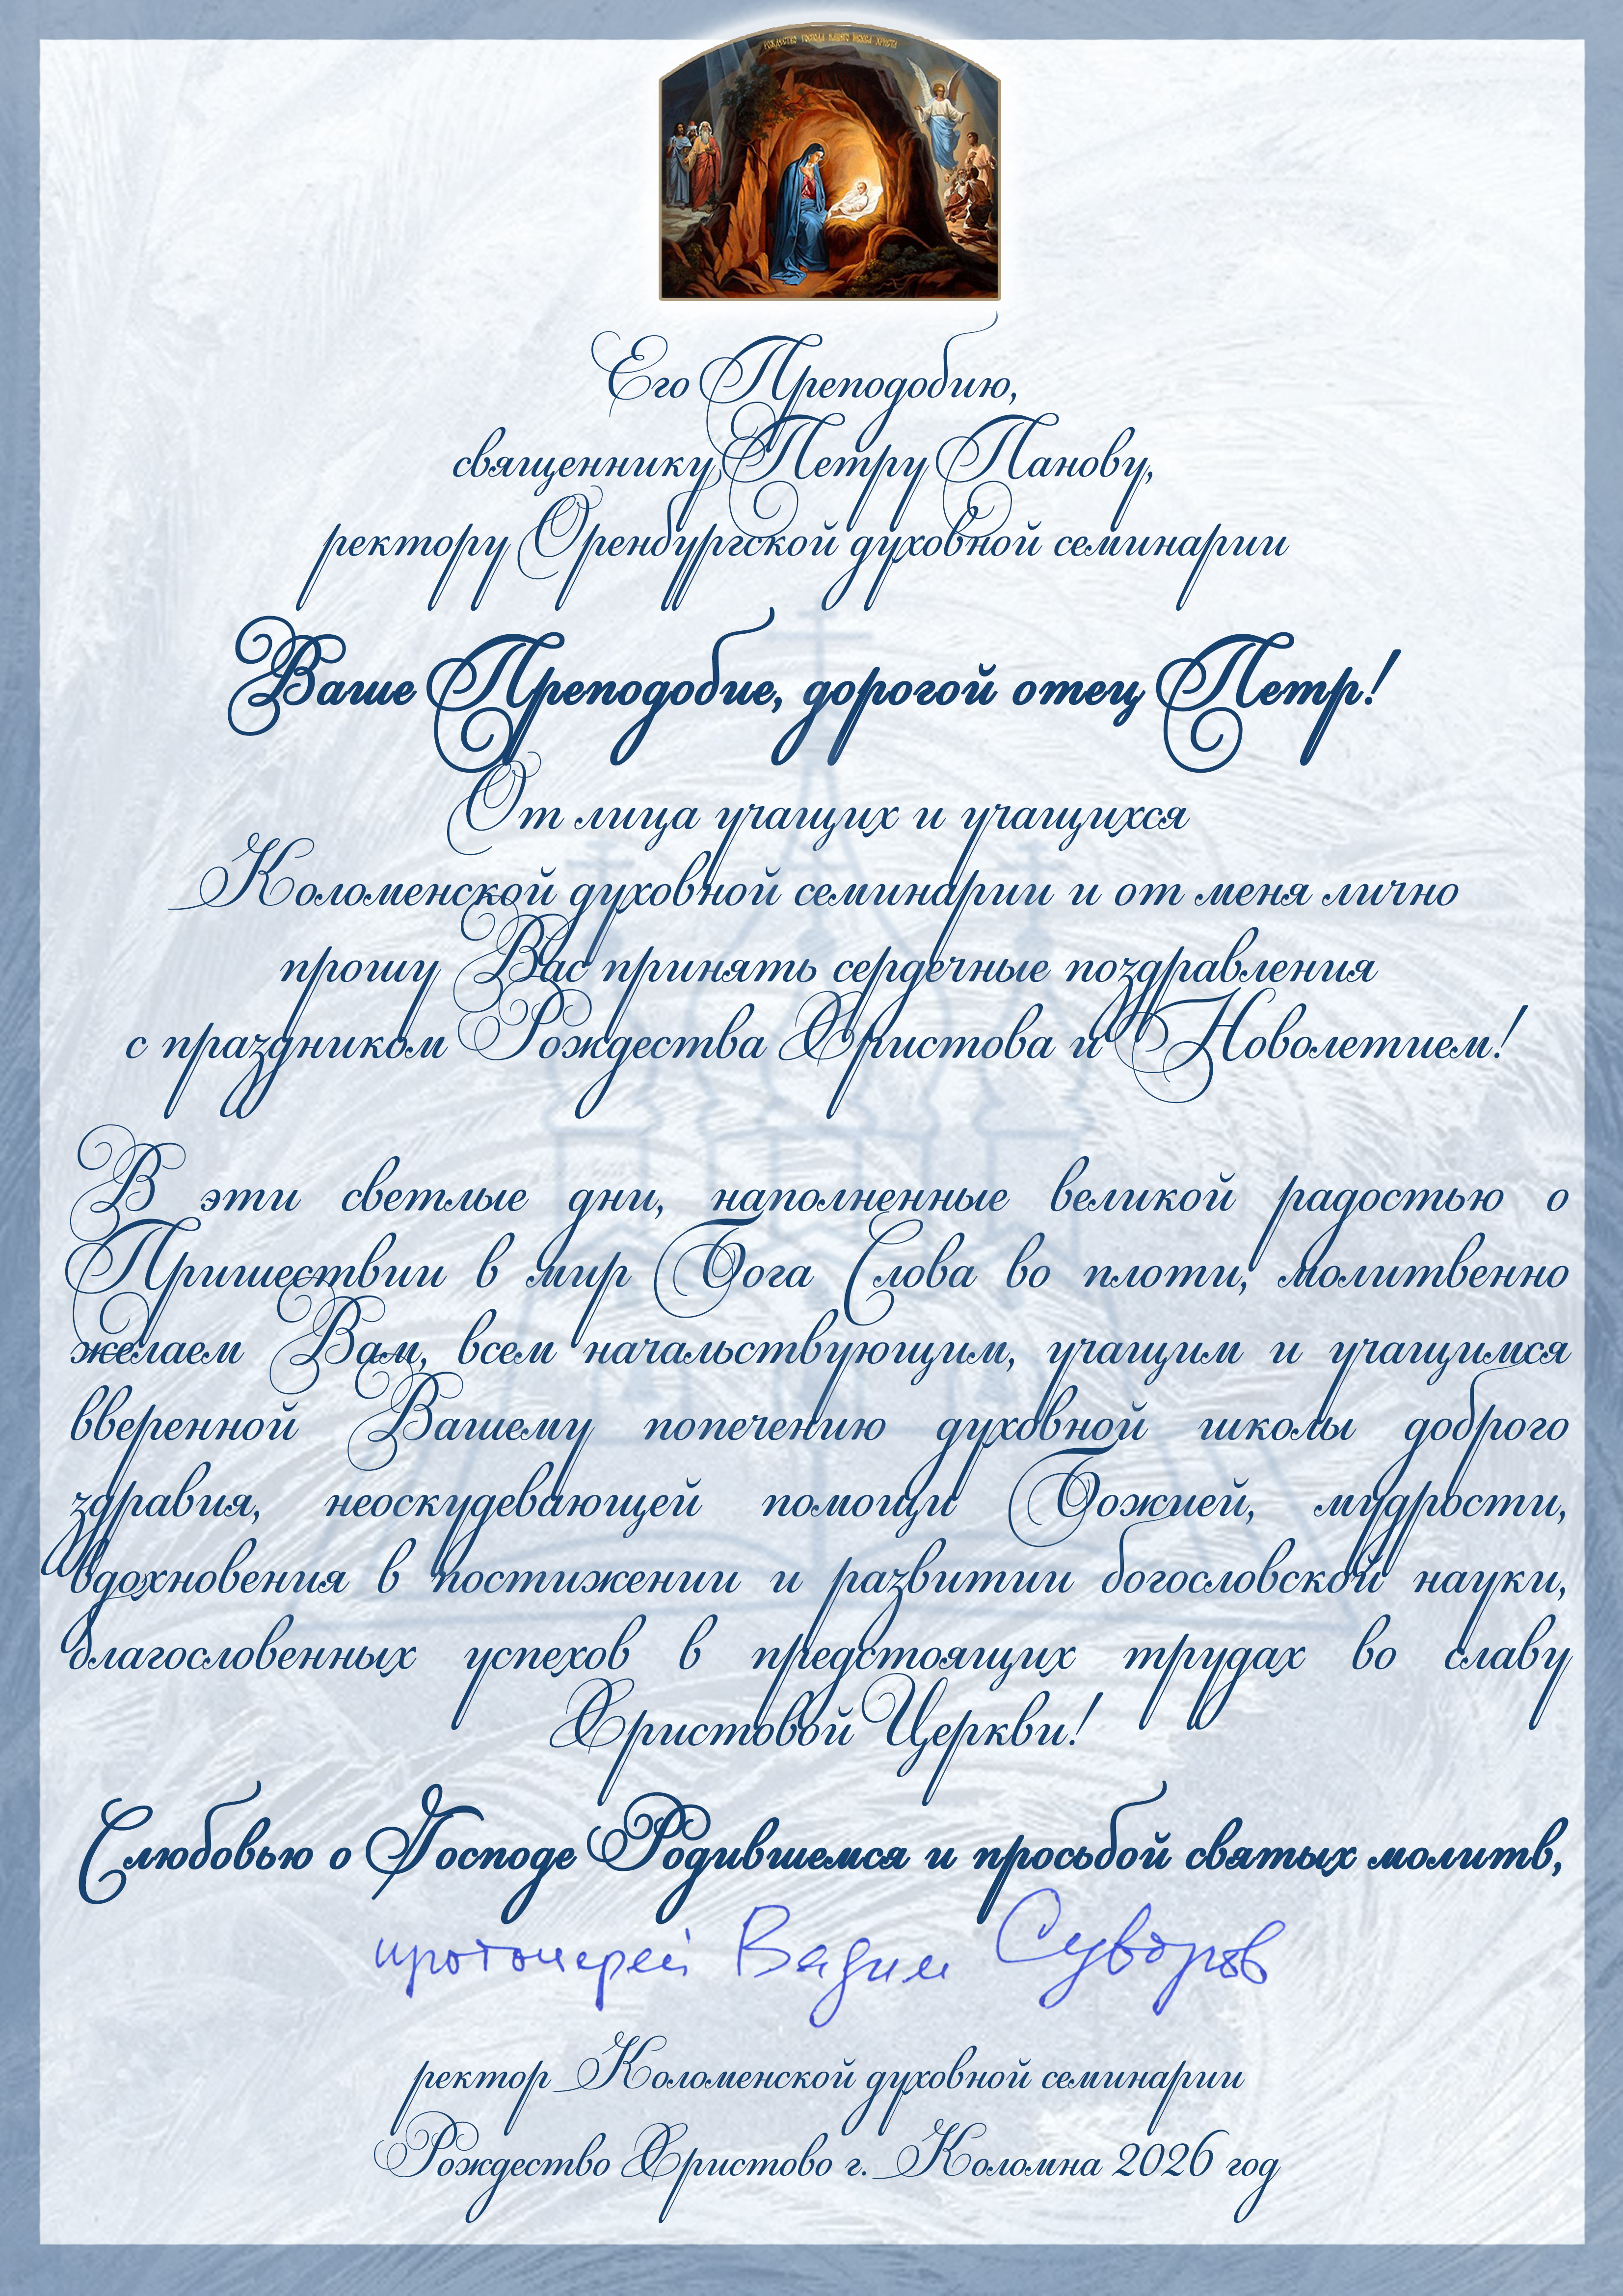 РОЖДЕСТВО ГОСПОДА НАШЕГО ИИСУСА ХРИСТА
Его Преподобию,
священнику Петру Панову,
ректору Оренбургской духовной семинарии
Ваше Преподобие, дорогой отец Петр!
От лица учащих и учащихся
Коломенской духовной семинарии и от меня лично
прошу Вас принять сердечные поздравления
с праздником Рождества Христова и Новолетием!
В эти светлые дни, наполненные великой радостью о
Пришествии в мир Бога Слова во плоти, молитвенно
желаем Вам, всем начальствующим, учащим и учащимся
вверенной Вашему попечению духовной школы доброго
здравия, неоскудевающей помощи Божией, мудрости,
вдохновения в постижении и развитии богословской науки,
благословенных успехов в предстоящих трудах во славу
Христовой Церкви!
С любовью о Господе Родившемся и просьбой святых молитв,
протоиерей Вадим Суворов
ректор Коломенской духовной семинарии
Рождество Христово г. Коломна 2026 год